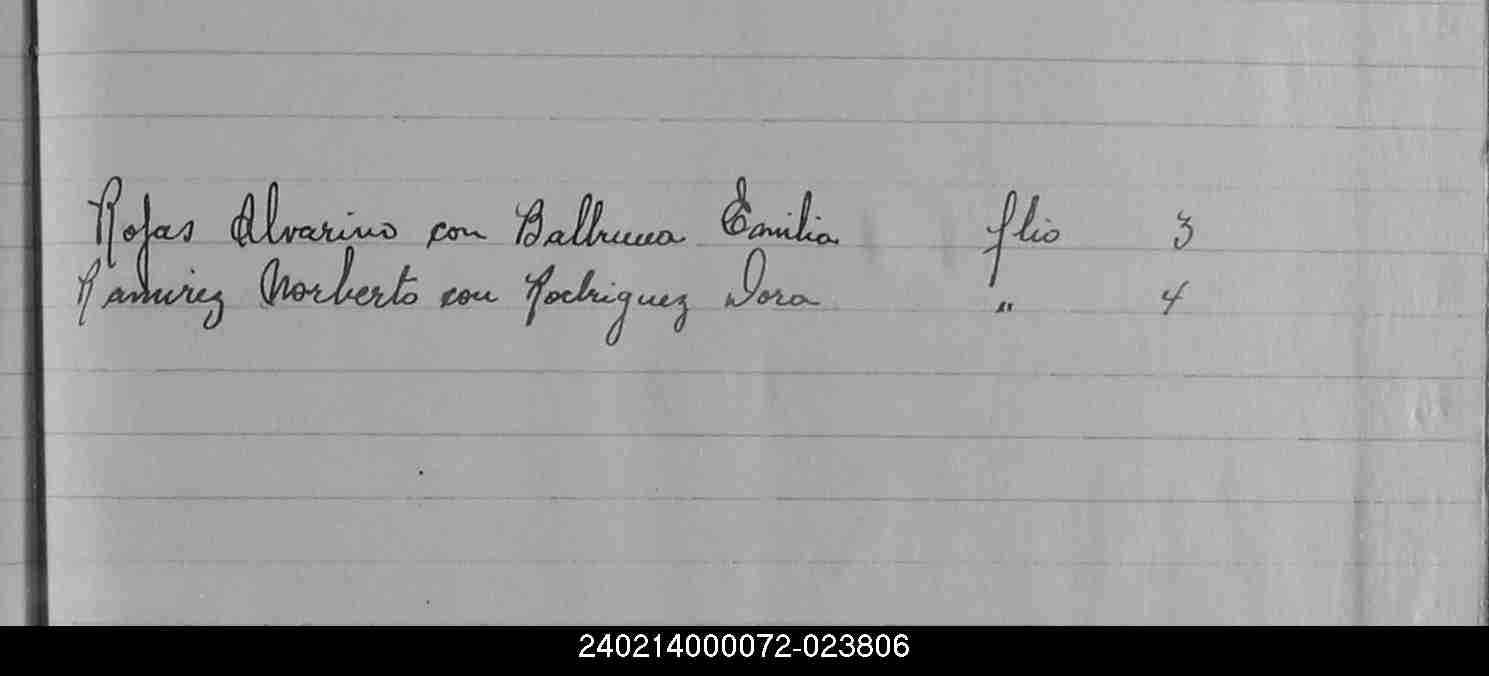 Rojas Alvarino con Emilia flio 3
Ramirez Norberto con Rodriguez Dora " 4
240214000072-023806